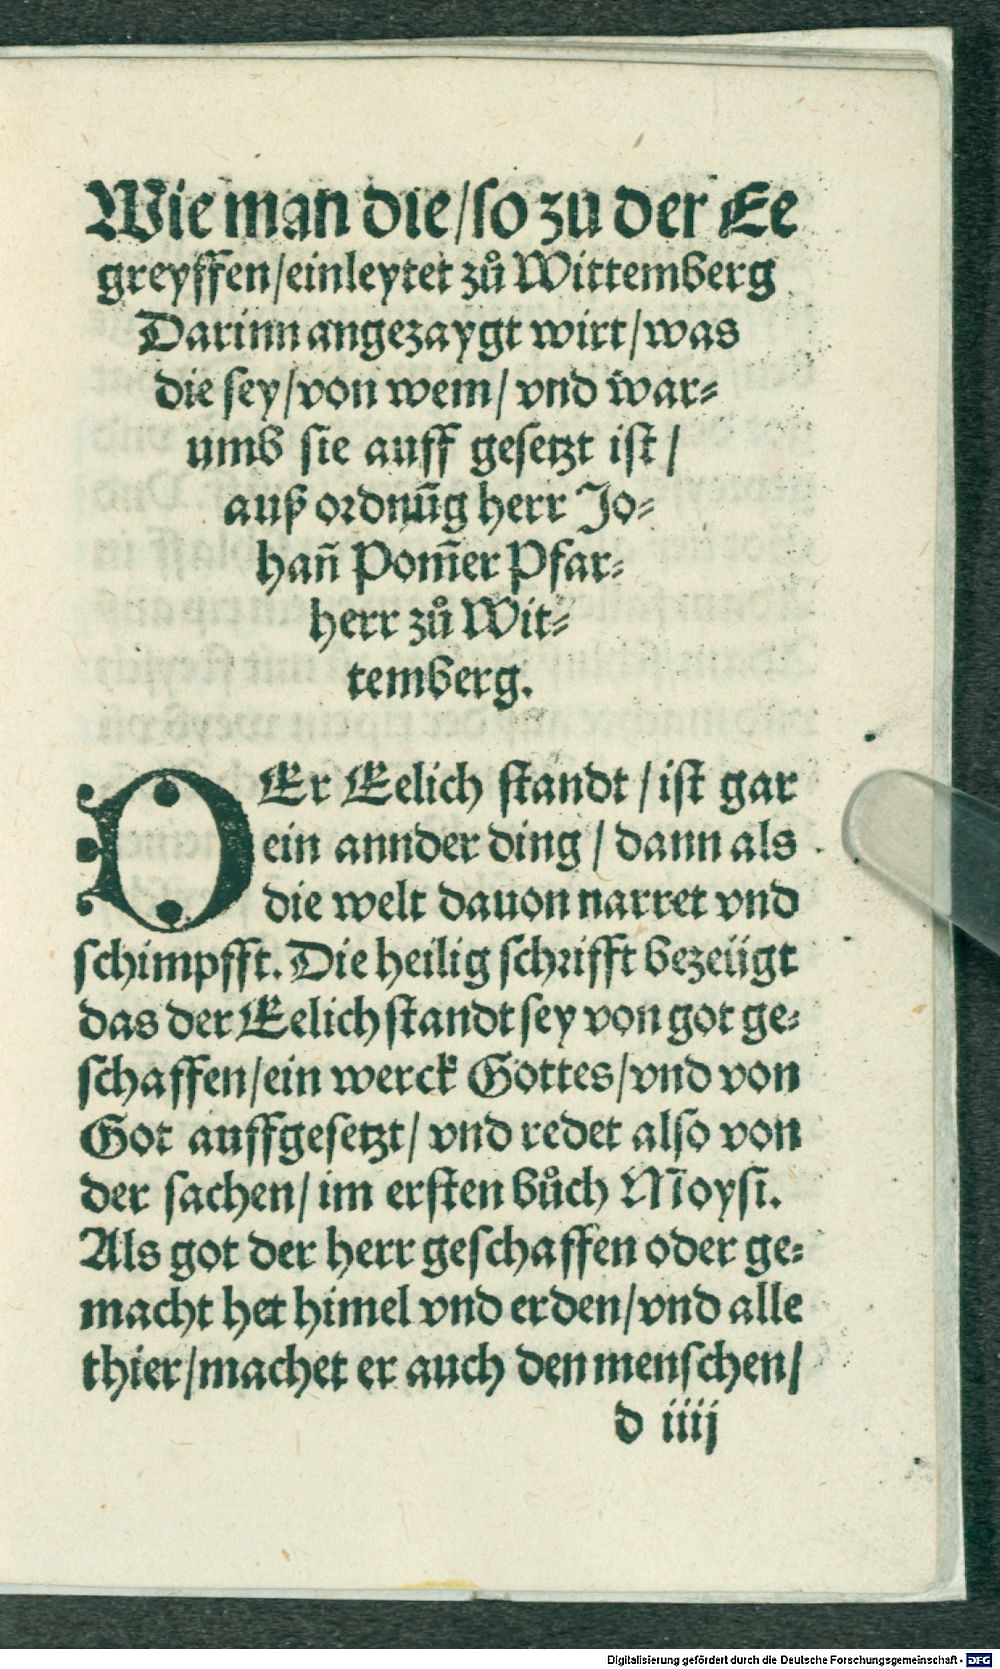 Wie man die/so zu der Ee
greyffen/einleytet zů Wittemberg
Darinn angezaygt wirt/was
die sey/von wem/vnd war⸗
umb sie auff gesetzt ist/
auß ordnūg herr Jo⸗
hañ Pom̄er Pfar⸗
herr zů Wit⸗
temberg.
DEr Eelich standt/ist gar
ein annder ding/dann als
die welt dauon narret vnd
schimpfft. Die heilig schrifft bezeügt
das der Eelich standt sey von got ge⸗
schaffen/ein werck Gottes/vnd von
Got auffgesetzt/vnd redet also von
der sachen/im ersten bůch Moysi.
Als got der herr geschaffen oder ge⸗
macht het himel vnd erden/vnd alle
thier/machet er auch den menschen/
d iiij
Digitalisierung gefördert durch die Deutsche Forschungsgemeinschaft - DFG